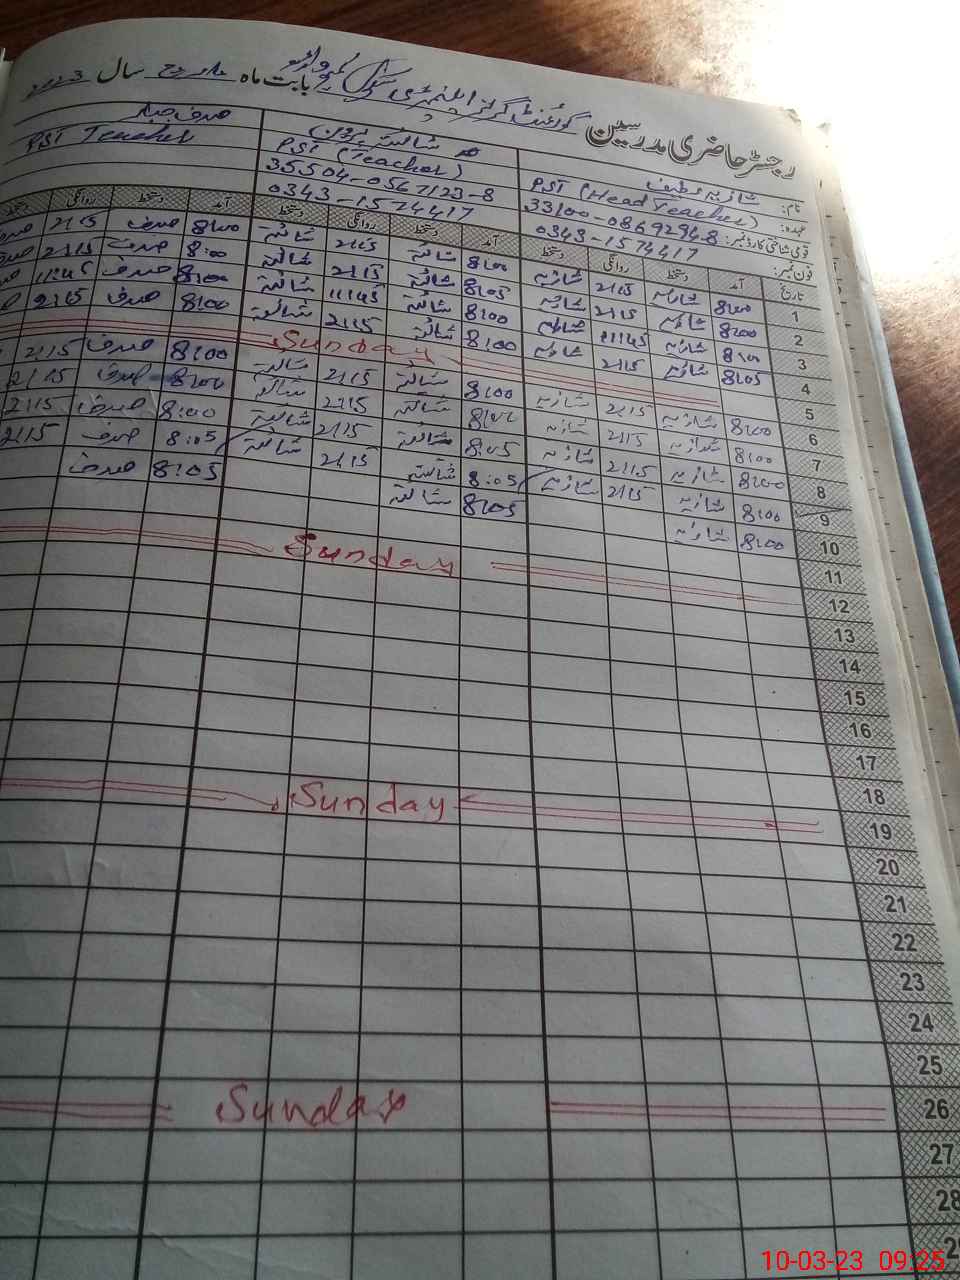 رجسٹر حاضری مدرسین گورنمنٹ گرلز ایلیمنٹری سکول بابت ماہ مارچ سال 2023
نام: شازیہ لطیف شائستہ پروین صدف جبار
عہدہ: PST (Head Teacher) PST (Teacher) PST Teacher
قومی شناختی کارڈ نمبر: 33100-0869294-8 35504-0567123-8
فون نمبر: 0343-1574417 0343-1574417
تاریخ آمد دستخط روانگی دستخط آمد دستخط روانگی دستخط آمد دستخط روانگی دستخط
1 8:00 شازیہ 2:15 شازیہ 8:00 شائستہ 2:15 شائستہ 8:00 صدف 2:15 صدف
2 8:00 شازیہ 2:15 شازیہ 8:05 شائستہ 2:15 شائستہ 8:00 صدف 2:15
3 8:00 شازیہ 11:45 شازیہ 8:00 شائستہ 11:45 شائستہ 8:00 صدف 11:45
4 8:05 شازیہ 2:15 شازیہ 8:00 شائستہ 2:15 شائستہ 8:00 صدف 2:15
5 Sunday
6 8:00 شازیہ 2:15 شازیہ 8:00 شائستہ 2:15 شائستہ 8:00 صدف 2:15
7 8:00 شازیہ 2:15 شازیہ 8:00 شائستہ 2:15 شائستہ 8:00 صدف 2:15
8 8:00 شازیہ 2:15 شازیہ 8:05 شائستہ 2:15 شائستہ 8:00 صدف 2:15
9 8:00 شازیہ 2:15 شازیہ 8:05 شائستہ 2:15 شائستہ 8:05 صدف 2:15
10 8:00 شازیہ 8:05 شائستہ 8:05 صدف
11
12 Sunday
13
14
15
16
17
18
19 Sunday
20
21
22
23
24
25
26 Sunday
27
28
29
10-03-23 09:25